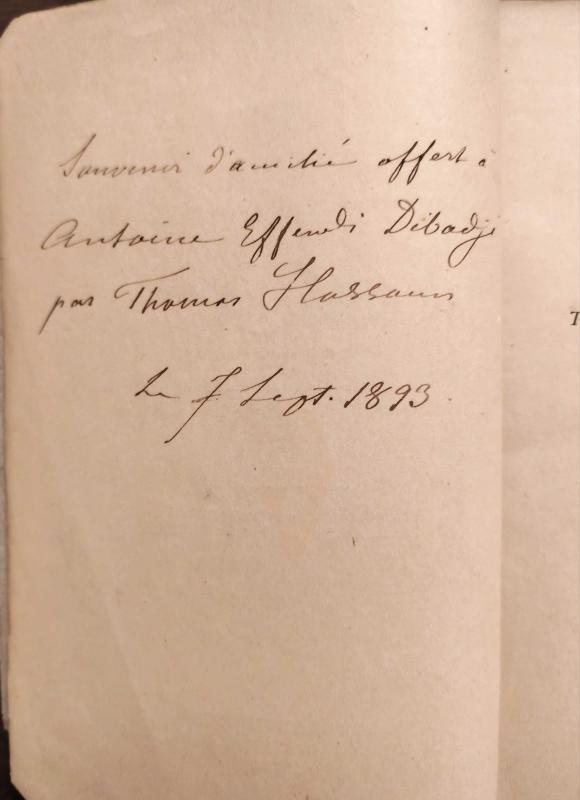 Souvenir d'amitié offert à
Antoine Effendi Dibadji
par Thomas Hassoun
Le 7 Sept. 1893.
T